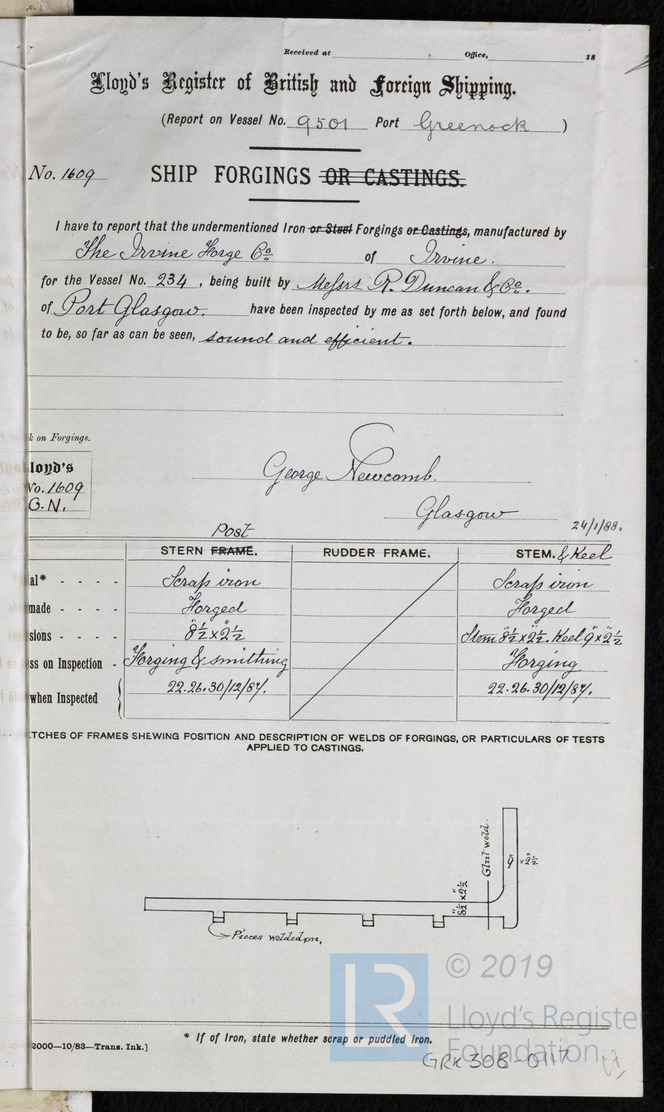 Received at Office, 18
Lloyd's Register of British and Foreign Shipping.
(Report on Vessel No. 9501 Port Greenock )
No. 1609 SHIP FORGINGS OR CASTINGS.
I have to report that the undermentioned Iron or Steel Forgings or Castings, manufactured by
The Irvine Forge Co. of Irvine.
for the Vessel No. 234, being built by Messrs R. Duncan & Co.
of Port Glasgow. have been inspected by me as set forth below, and found
to be, so far as can be seen, sound and efficient.
k on Forgings.
loyd's
No. 1609
G.N.
George Newcomb.
Glasgow 24/1/88.
Post
STERN FRAME. RUDDER FRAME. STEM. & Keel
al* - - - - Scrap iron Scrap iron
made - - - - Forged Forged
sions - - - - 8½" x 2½" Stem 8½" x 2½". Keel 9" x 2½"
ss on Inspection - Forging & smithing Forging
when Inspected 22.26.30/12/87. 22.26.30/12/87.
TCHES OF FRAMES SHEWING POSITION AND DESCRIPTION OF WELDS OF FORGINGS, OR PARTICULARS OF TESTS
APPLIED TO CASTINGS.
Glut weld.
9" x 2½"
8½" x 2½"
Pieces welded on,
© 2019
LR
Lloyd's Register
Foundation
* If of Iron, state whether scrap or puddled iron.
2000—10/83—Trans. Ink.]
GRK308-0117